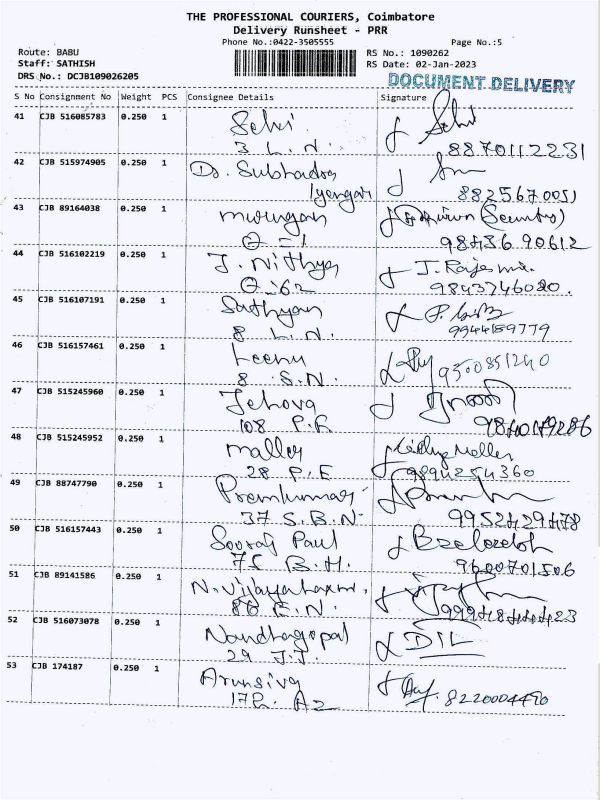 THE PROFESSIONAL COURIERS, Coimbatore
Delivery Runsheet - PRR
Phone No.:0422-3505555 Page No.:5
Route: BABU RS No.: 1090262
Staff: SATHISH RS Date: 02-Jan-2023
DRS No.: DCJB109026205 DOCUMENT DELIVERY
S No Consignment No Weight PCS Consignee Details Signature
41 CJB 516085783 0.250 1 Selvi
3 L.N. 8870112231
42 CJB 515974905 0.250 1 Dr. Subhadra
Iyengar 8825670051
43 CJB 89164038 0.250 1 murugan (Security)
O-1 9843690612
44 CJB 516102219 0.250 1 J. Nithya J. Rajesh
O-162 9843746020.
45 CJB 516107191 0.250 1 Sathyan
8 L.N. 9944189779
46 CJB 516157461 0.250 1 Leenu
8 S.N. 9500851240
47 CJB 515245960 0.250 1 Jehova
108 P.R 9840149286
48 CJB 515245952 0.250 1 maller Maller
28 P.E 9894254360
49 CJB 88747790 0.250 1 Premkumar
37 S.B.N. 9952429478
50 CJB 516157443 0.250 1 Sooraj Paul
75 B.H. 9600701506
51 CJB 89141586 0.250 1 N. Vijayalaxmi,
86 E.N. 9994844423
52 CJB 516073078 0.250 1 Nandhagopal DIL
29 J.J.
53 CJB 174187 0.250 1 Arunsiva
172. A2 8220004490